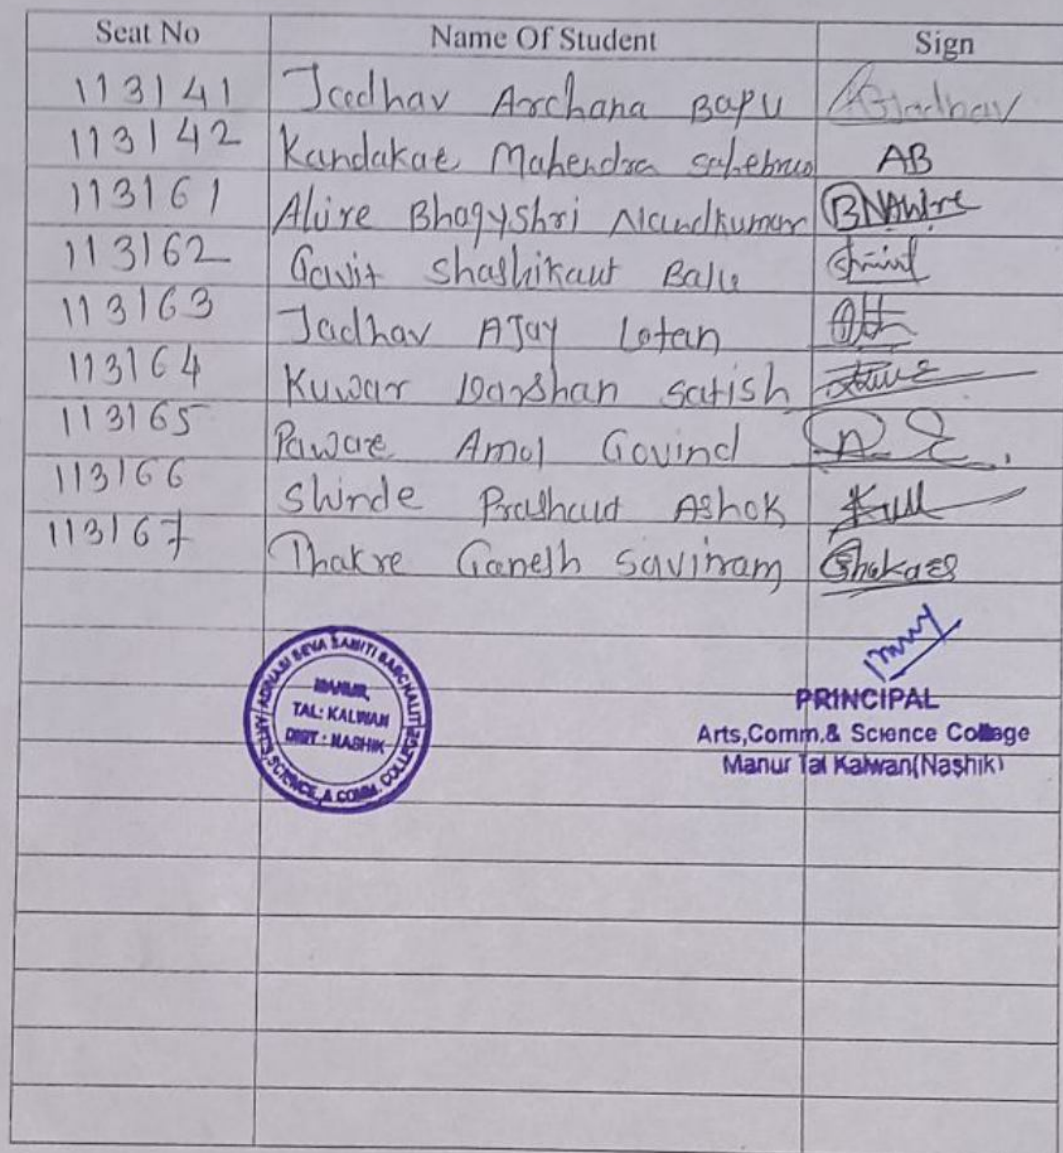 Seat No Name Of Student Sign
113141 Jadhav Archana Bapu ABJadhav
113142 Kandakae Mahendra Sahebrao AB
113161 Ahire Bhagyshri Nandkumar BNAhire
113162 Gavit Shashikant Balu
113163 Jadhav Ajay Lotan
113164 Kuwar Darshan Satish
113165 Pawar Amol Govind
113166 Shinde Prashant Ashok
113167 Thakre Ganesh Saviram Gthakare
ADIVASI SEVA SAMITI SANCHALIT
MANUR,
TAL: KALWAN
DIST: NASHIK
ARTS, SCIENCE, & COMM. COLLEGE
PRINCIPAL
Arts,Comm.& Science College
Manur Tal Kalwan(Nashik)